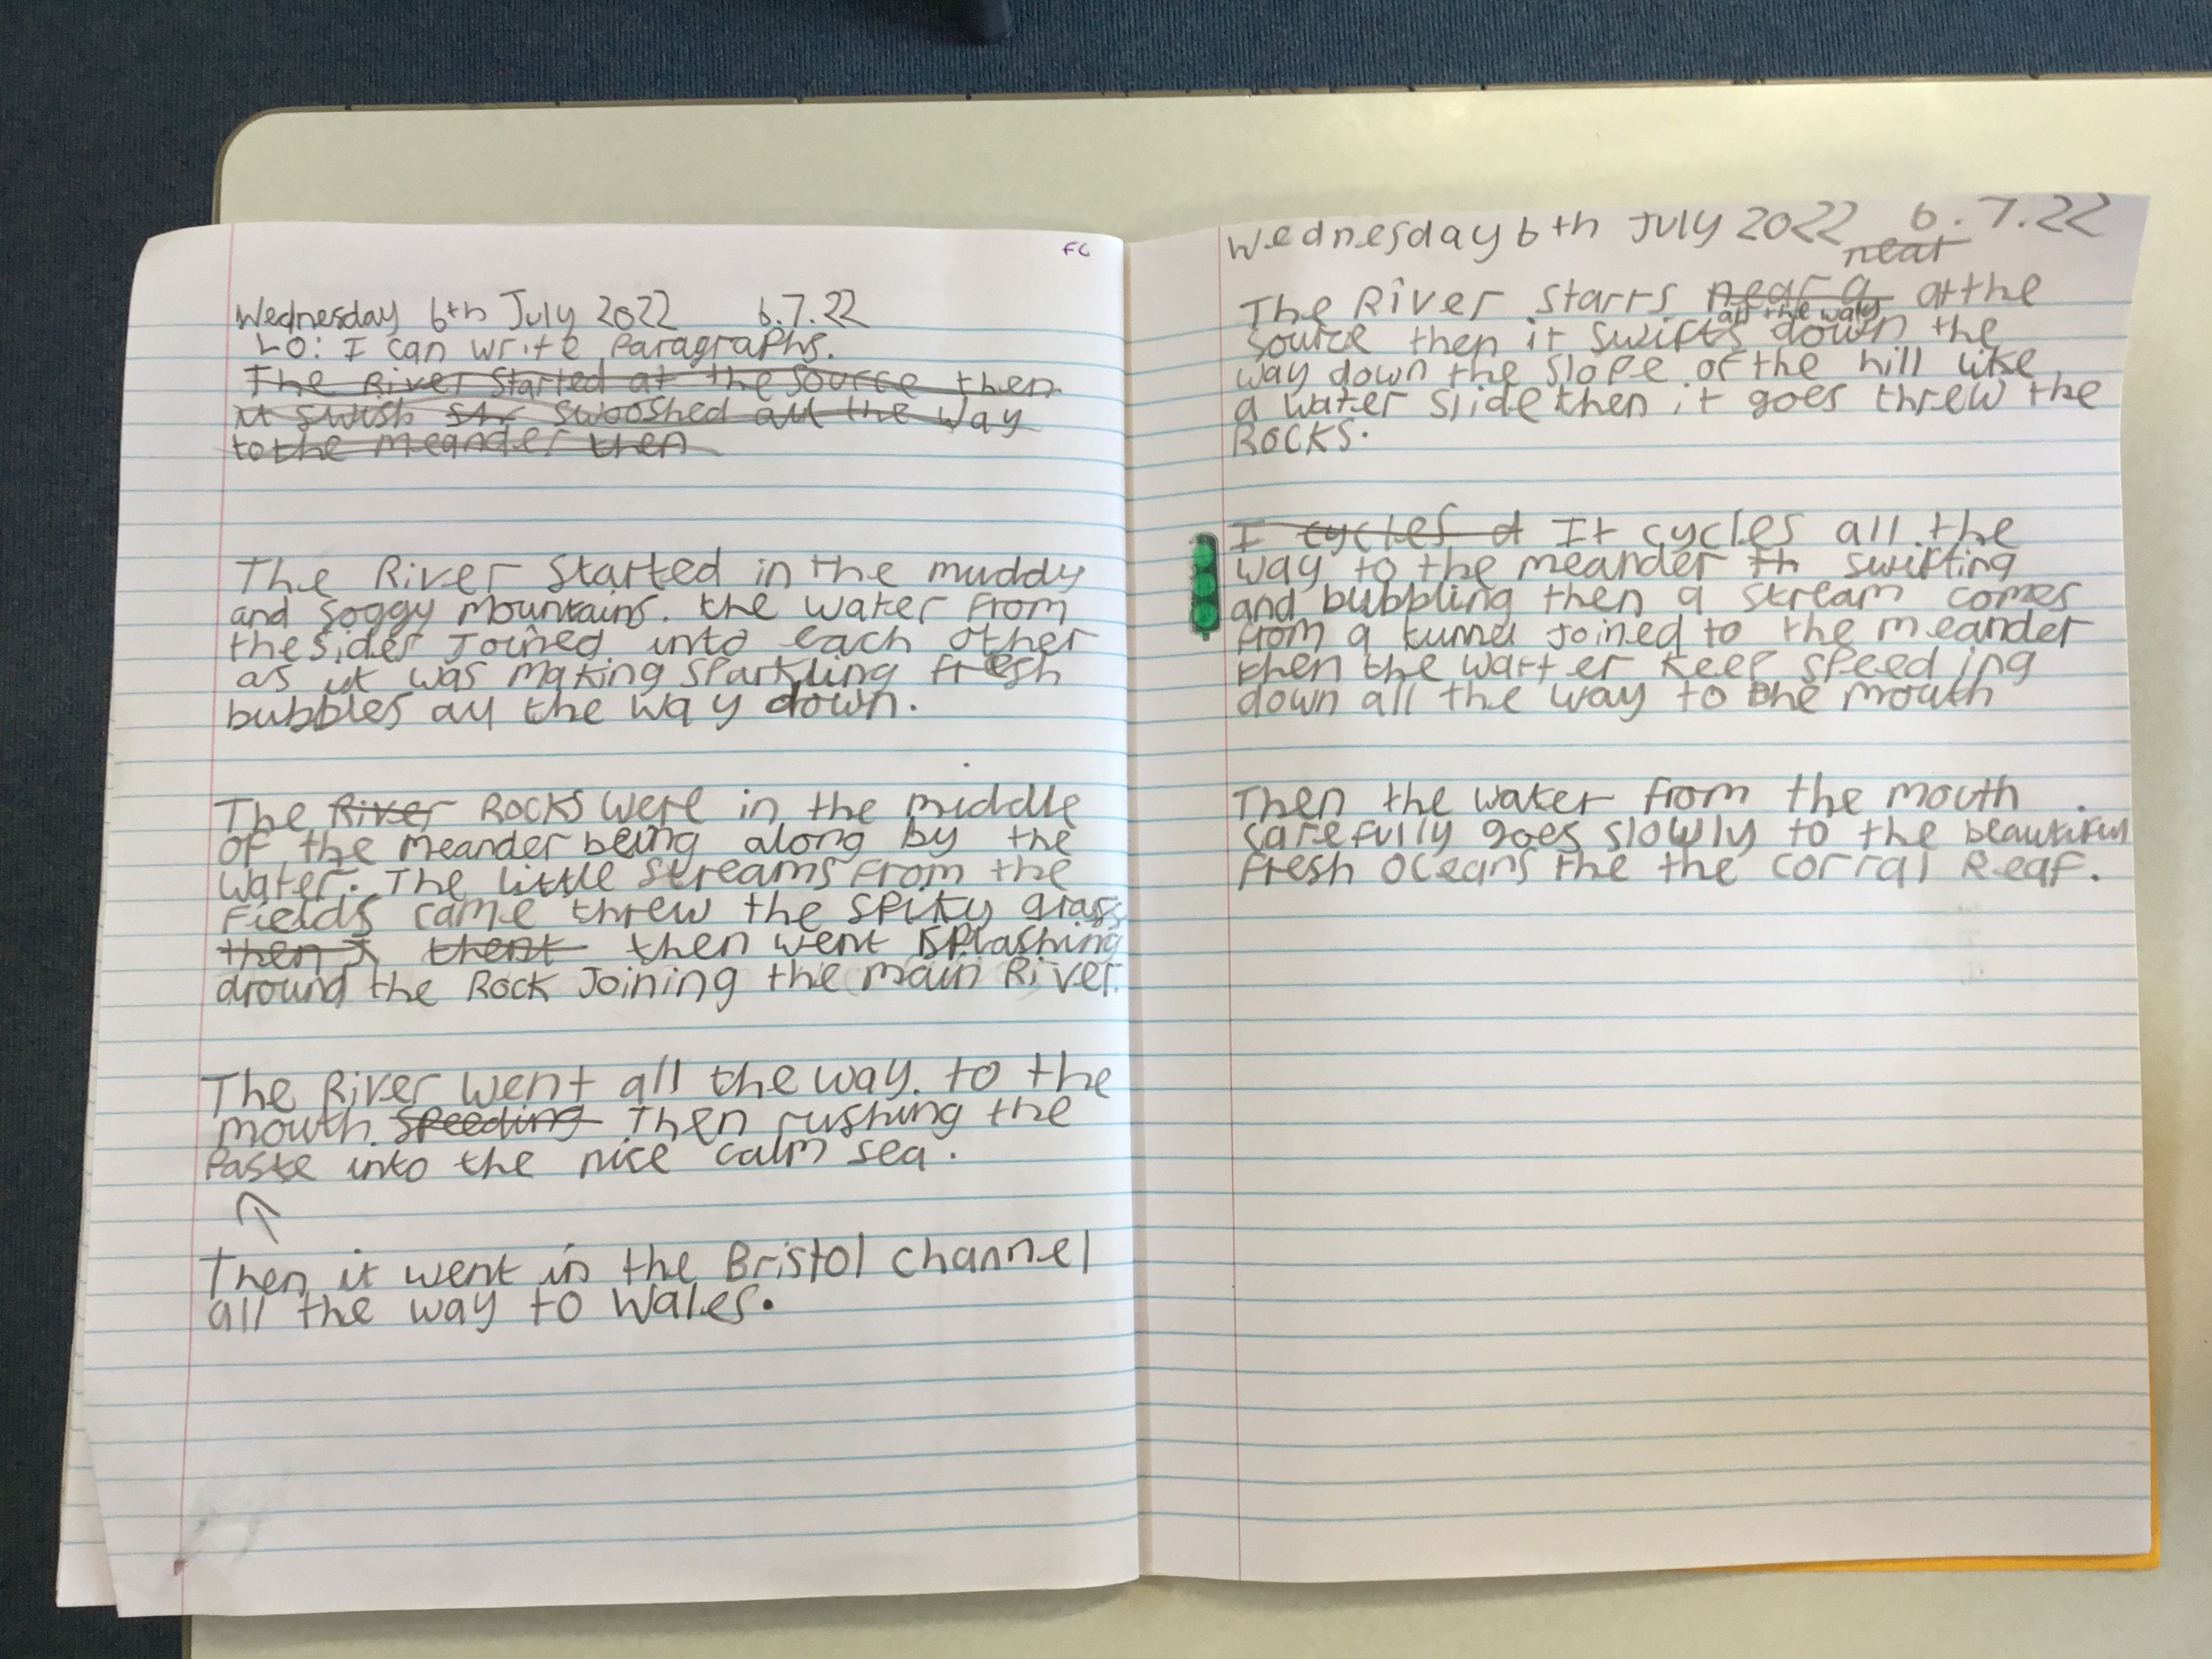 FC
Wednesday 6th July 2022 6.7.22
LO: I can write Paragraphs.
The River Started at the Source then
it swish str swooshed all the way
to the meander then
The River Started in the muddy
and soggy mountains. the water from
the sides Joined into each other
as it was making sparkling fresh
bubbles all the way down.
The River Rocks were in the middle
of the meander being along by the
water. The little streams from the
fields came threw the spiky grass
then I thent then went splashing
around the Rock Joining the main River.
The River went all the way. to the
mouth. speeding Then rushing the
Paste into the nice calm sea.
Then it went in the Bristol channel
all the way to Wales.
Wednesday 6th July 2022 6.7.22
near
The River Starts near a at the
all the waty
source then it swifts down the
way down the slope of the hill like
a water slide then it goes threw the
Rocks.
I cycles a It cycles all the
way to the meander th swifting
and bubbling then a stream comes
from a tunnel Joined to the meander
then the watter keep speed ing
down all the way to the mouth
Then the water from the mouth
carefully goes slowly to the beautiful
fresh oceans the the corral Reaf.